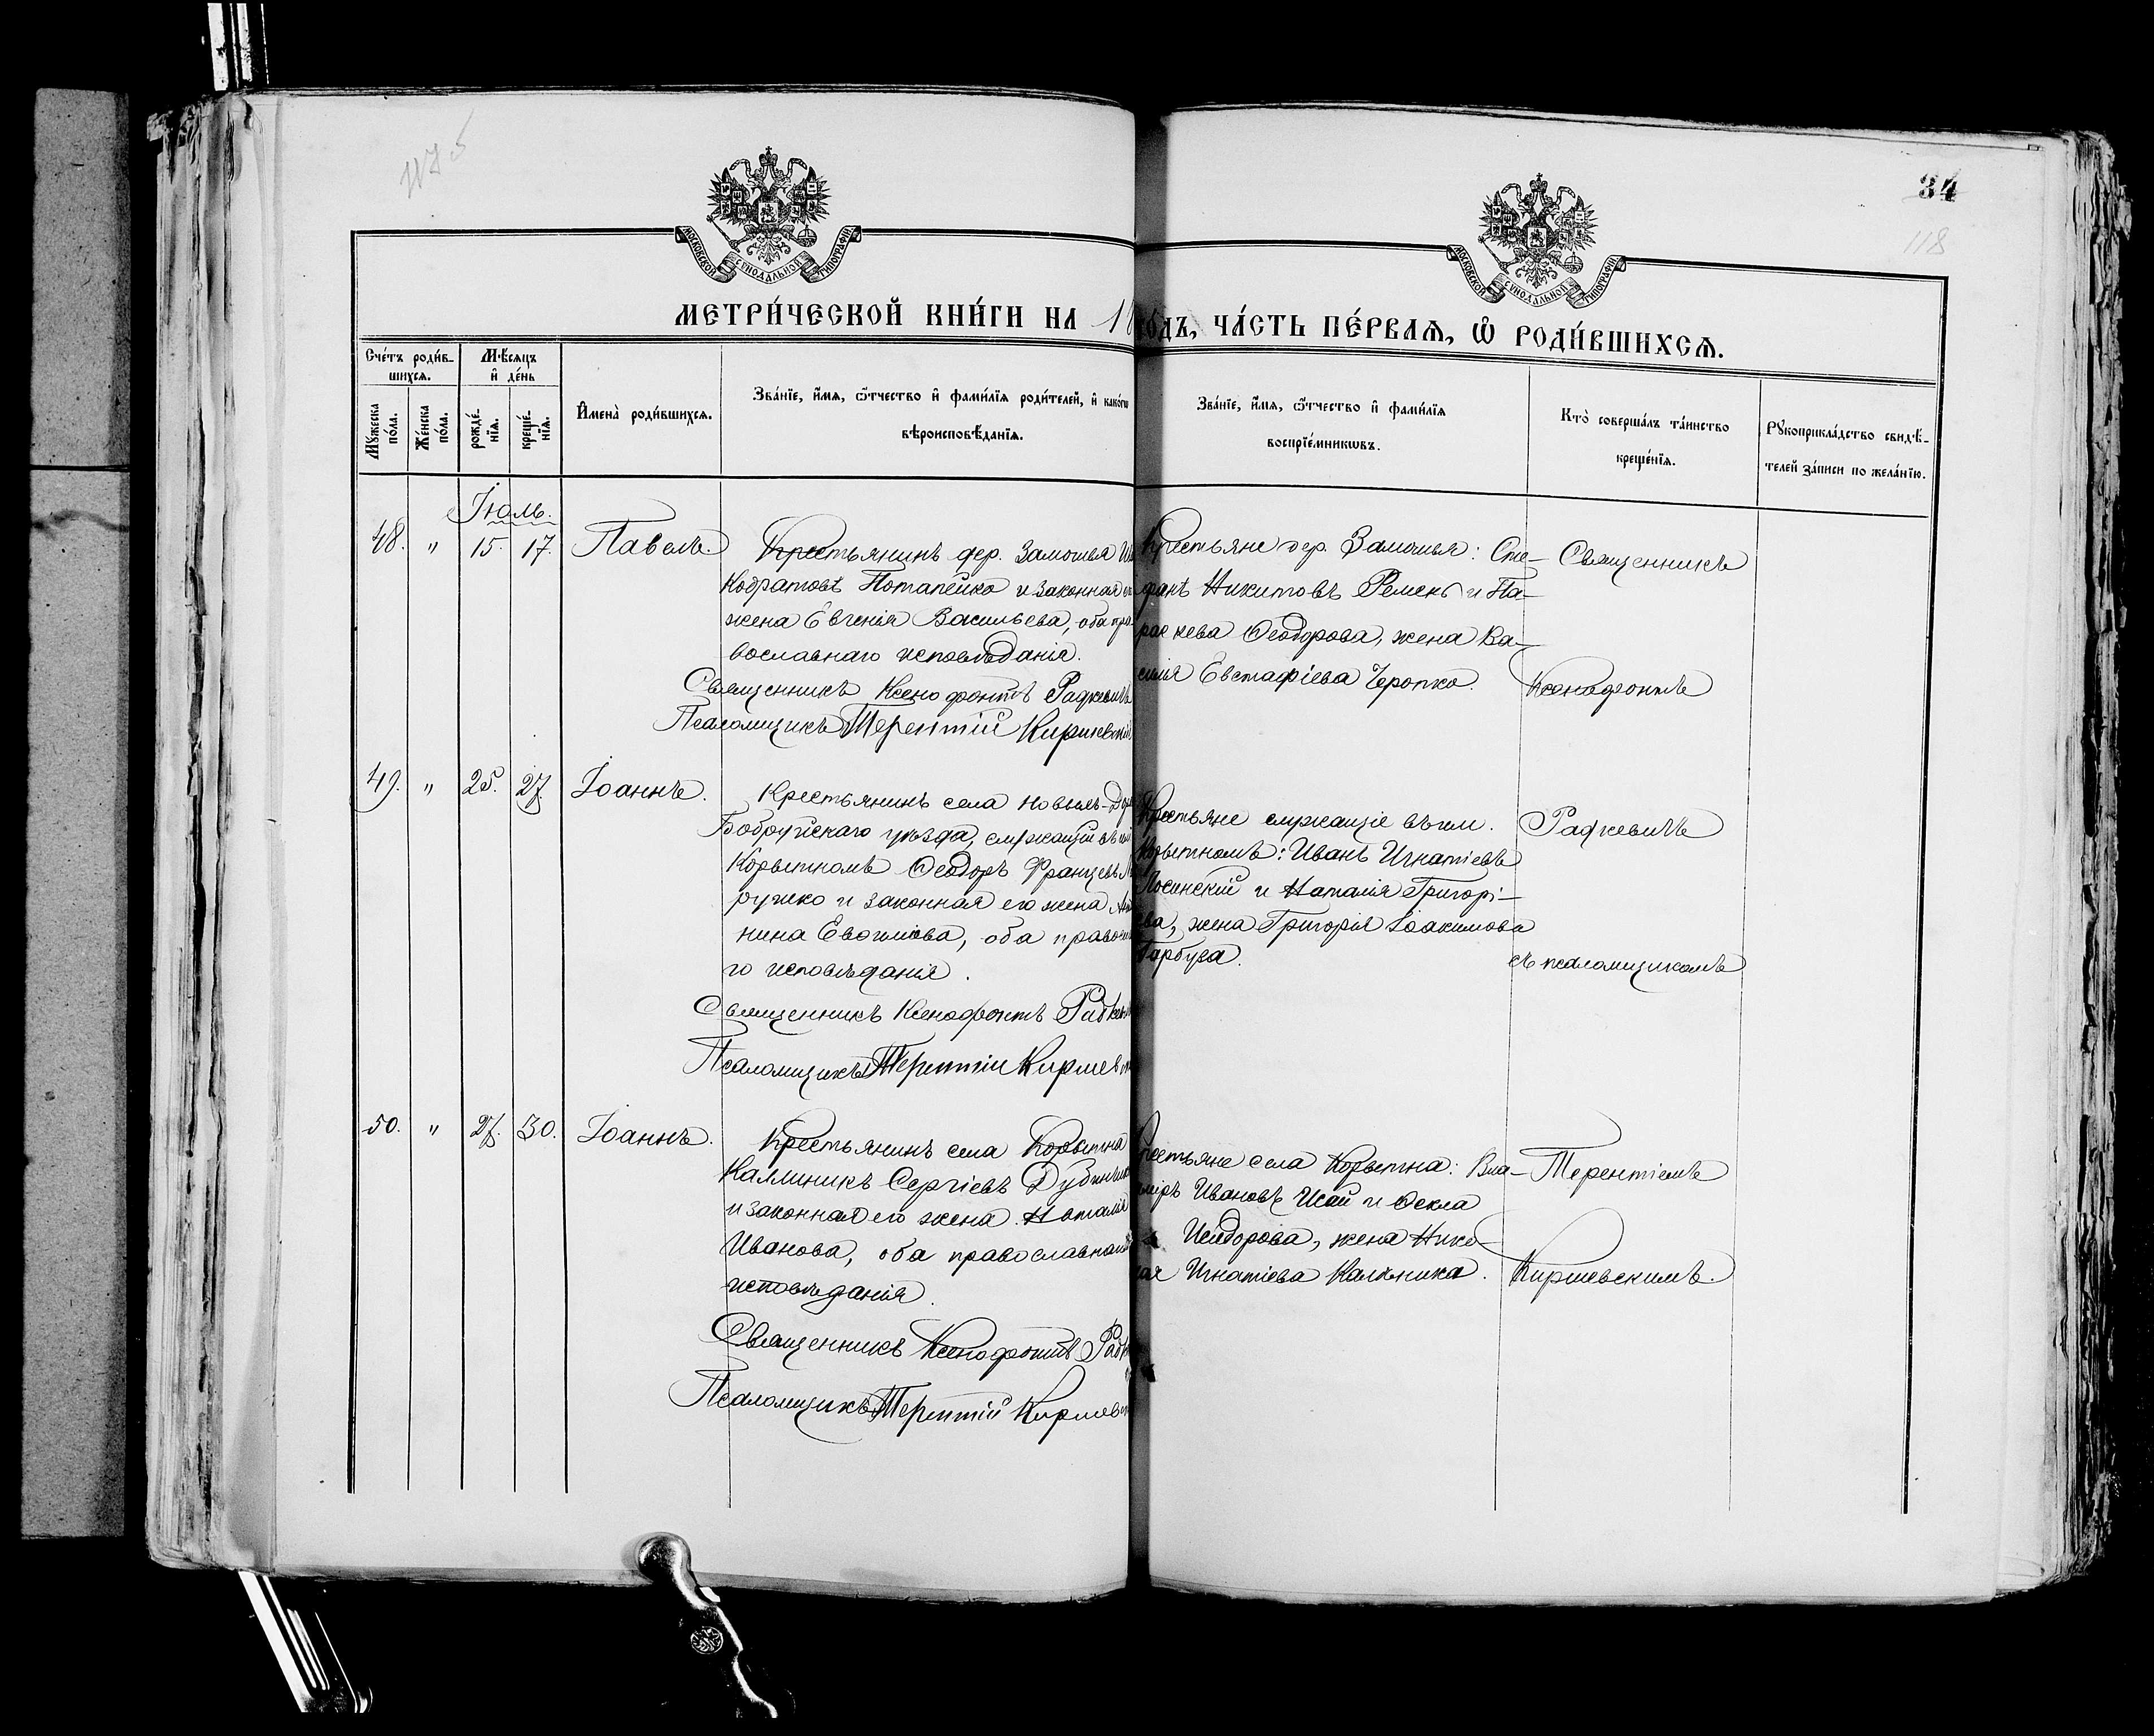 34
118
МОСКОВСКОЙ СѴНОДАЛЬНОЙ ТИПОГРАФІИ
МОСКОВСКОЙ СѴНОДАЛЬНОЙ ТИПОГРАФІИ
МЕТРИ́ЧЕСКОЙ КНИ́ГИ НА 18
ГО́ДЪ, ЧА́СТЬ ПЕ́РВАѦ, Ѽ РОДИ́ВШИХСѦ.
Сче́тъ роди́в-
шихсѧ.
Мѣ́сѧцъ
и҆ де́нь
Мꙋ́жеска
по́ла.
Же́нска
по́ла.
рожде́-
нїѧ.
креще́-
нїѧ.
И҆мена̀ роди́вшихсѧ.
Зва́нїе, и҆́мѧ, ѻ҆́тчество и҆ фами́лїѧ роди́телей, и҆ како́гѡ
вѣроисповѣ́данїѧ.
Зва́нїе, и҆́мѧ, ѻ҆́тчество и҆ фами́лїѧ
воспрїе́мникѡвъ.
Кто̀ соверша́лъ та́инство
креще́нїѧ.
Рꙋкоприкла́дство свидѣ́-
телей за́писи по жела́нїю.
Іюль.
48. " 15. 17. Павелъ.
Крестьянинъ дер. Замошья
Кодратовъ Потапейко и законная
жена Евгенія Васильева, оба пра-
вославнаго исповѣданія.
Священникъ Ксенофонтъ Радкевичъ
Псаломщикъ Терентій Киршевскій
Крестьяне дер. Замошья: Сте-
фанъ Никитовъ Ремень и Па-
раскева Ѳеодорова, жена Ва-
силія Евстафіева Черопко.
Священникъ
Ксенофонтъ
49. " 25. 27. Іоаннъ.
Крестьянинъ села Новыхъ-
Бобруйскаго уѣзда, служащій въ
Корытномъ Ѳеодоръ Францевъ
рушко и законная его жена
нина Евѳиміова, оба
го исповѣданія.
Священникъ Ксенофонтъ
Псаломщикъ Терентій
Крестьяне служащіе въ им.
Корытномъ: Иванъ Игнатіевъ
Лосинскій и Наталія Григорі-
ева, жена Григорія Іоакимова
Гарбуза.
Радкевичъ
съ псаломщикомъ
50. " 27. 30. Іоаннъ.
Крестьянинъ села Корытна
Каллиникъ Сергіевъ
и законная его жена Наталія
Иванова, оба православнаго
исповѣданія.
Священникъ Ксенофонтъ
Псаломщикъ Терентій
Крестьяне села Корытна: Вла-
Ивановъ Исай и Ѳекла
Исидорова, жена Нико-
лая Игнатіева Каленика.
Терентіемъ
Киршевскимъ.